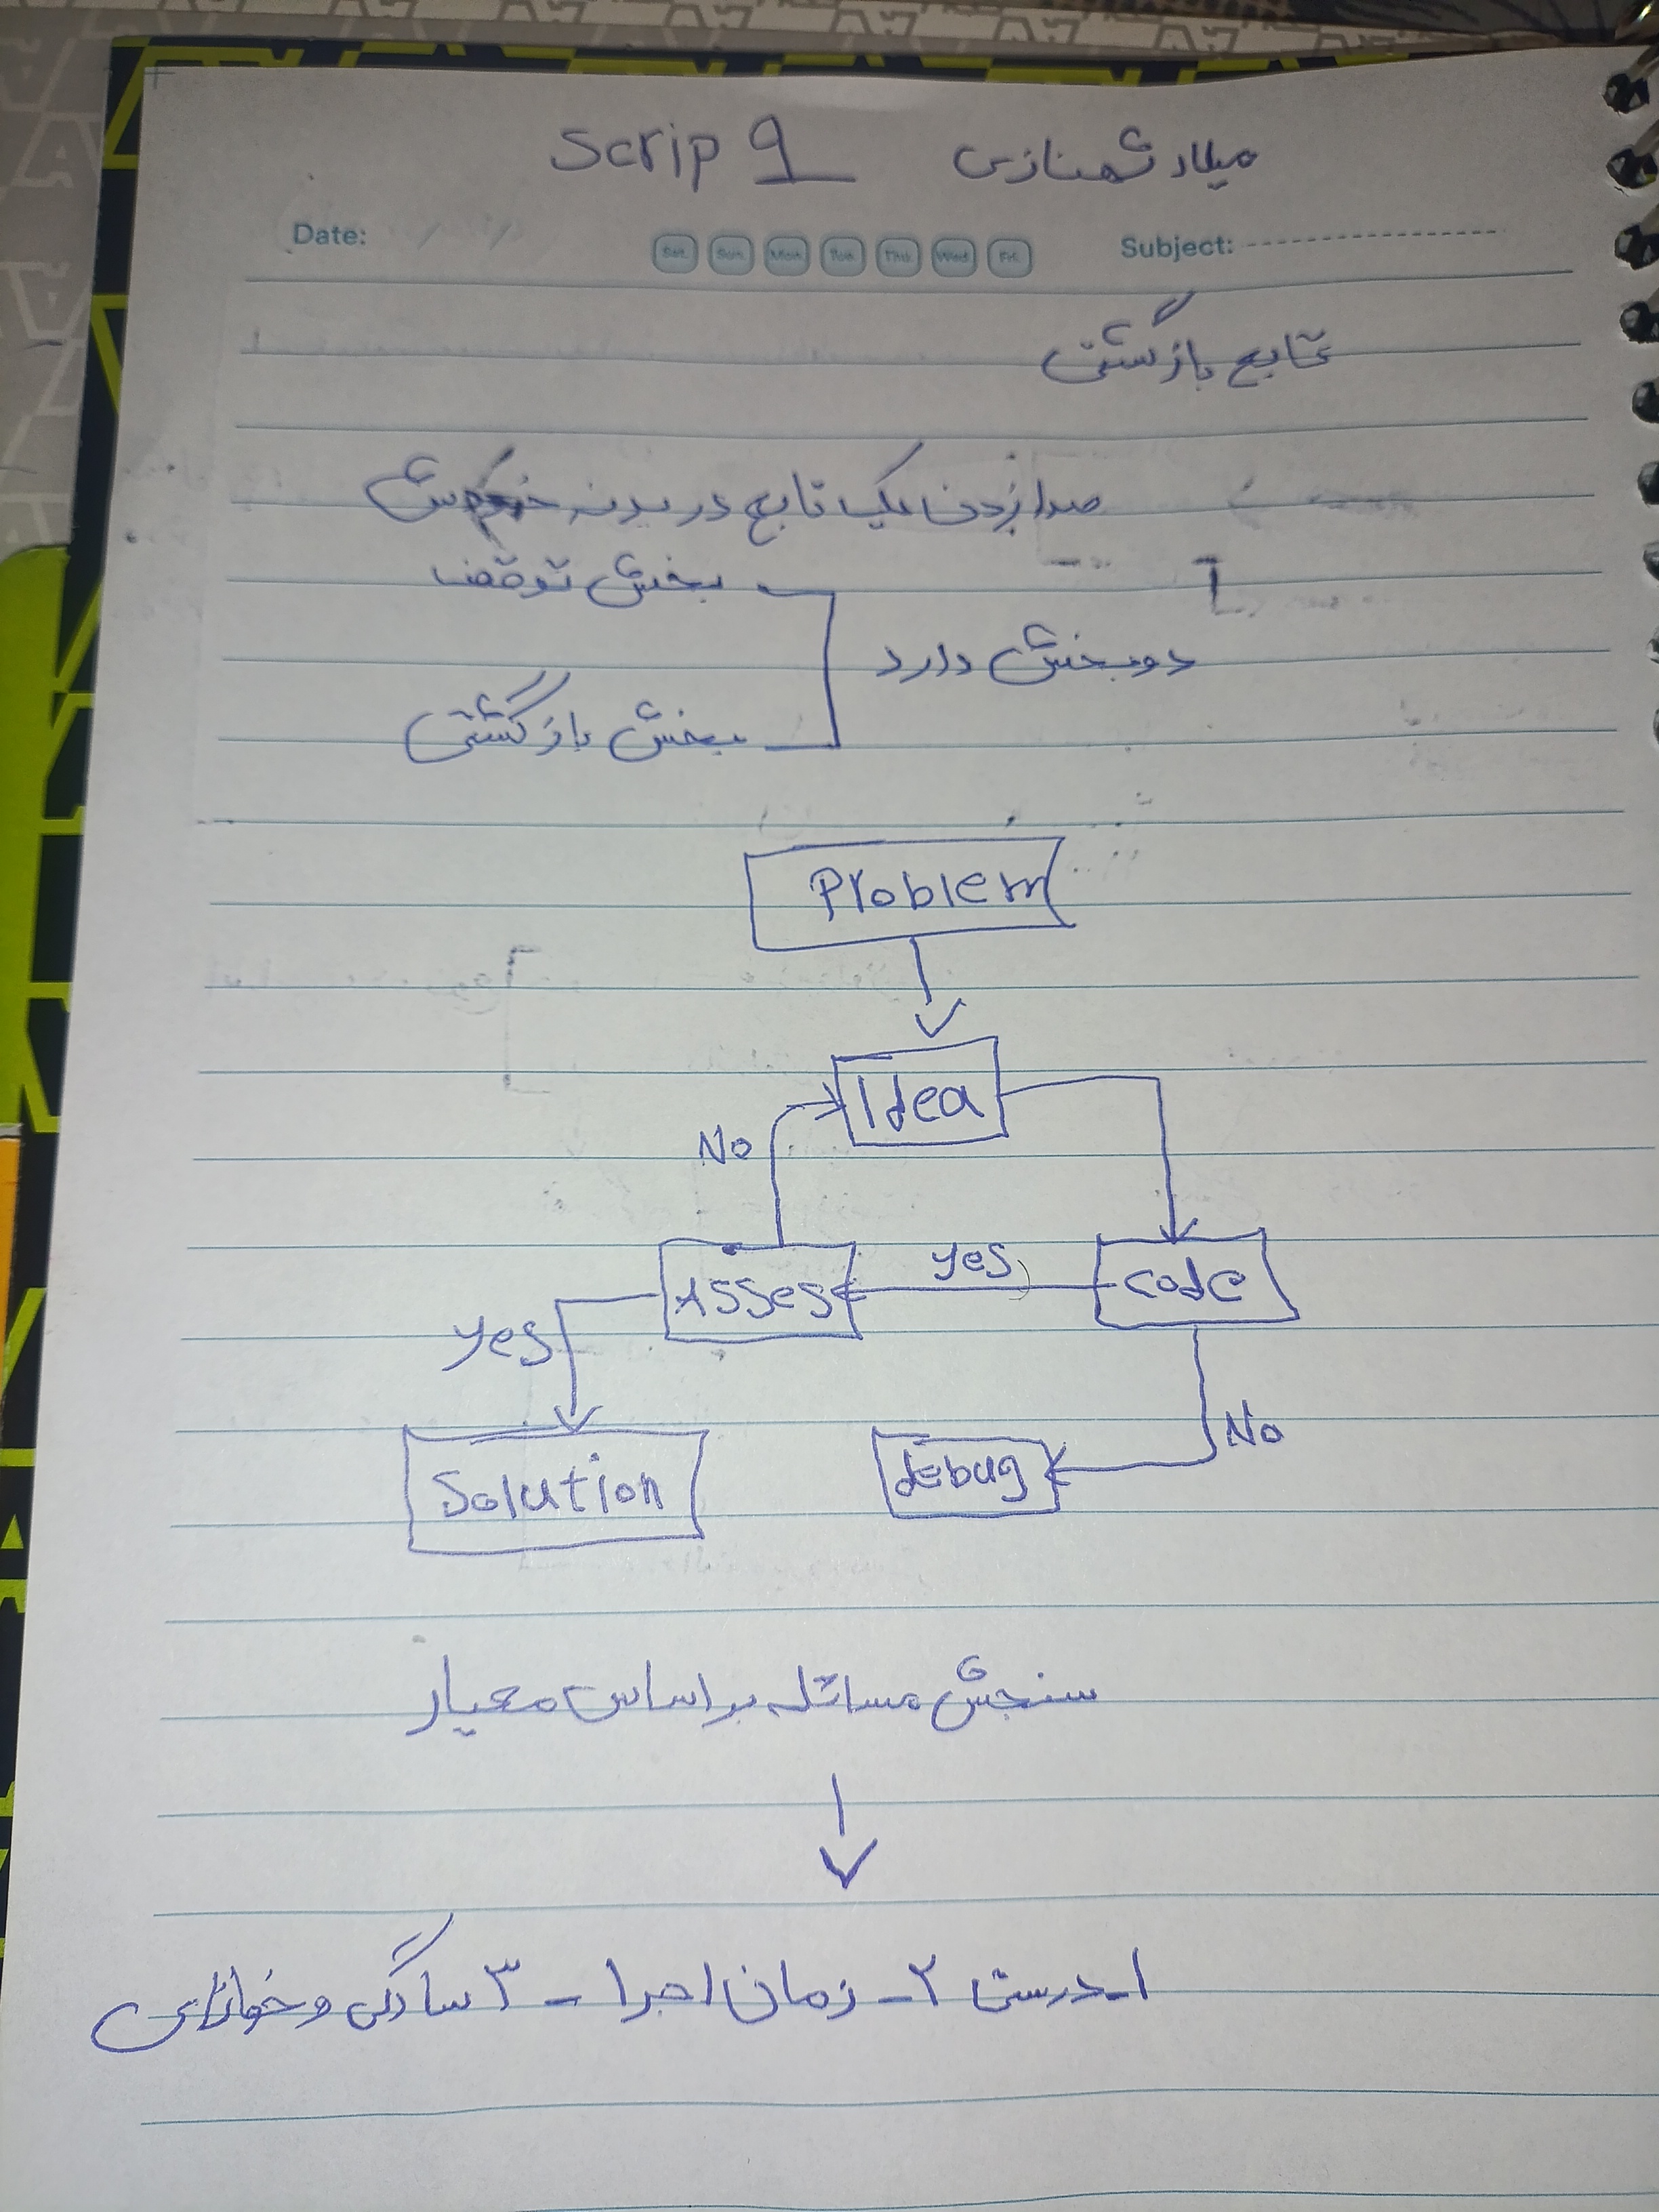 Scrip 9 میلاد شهنازی
Date: / / Sat. Sun. Mon. Tue. Thu. Wed. Fri. Subject:
تابع بازگشتی
صدا زدن یک تابع در بدنه خودش
بخش توقف
دو بخش دارد
بخش بازگشتی
Problem
Idea
No
Asses yes code
yes
No
Solution debug
سنجش مسائله بر اساس معیار
۱ـ درستی ۲ـ زمان اجرا ـ ۳ سادگی و خوانای